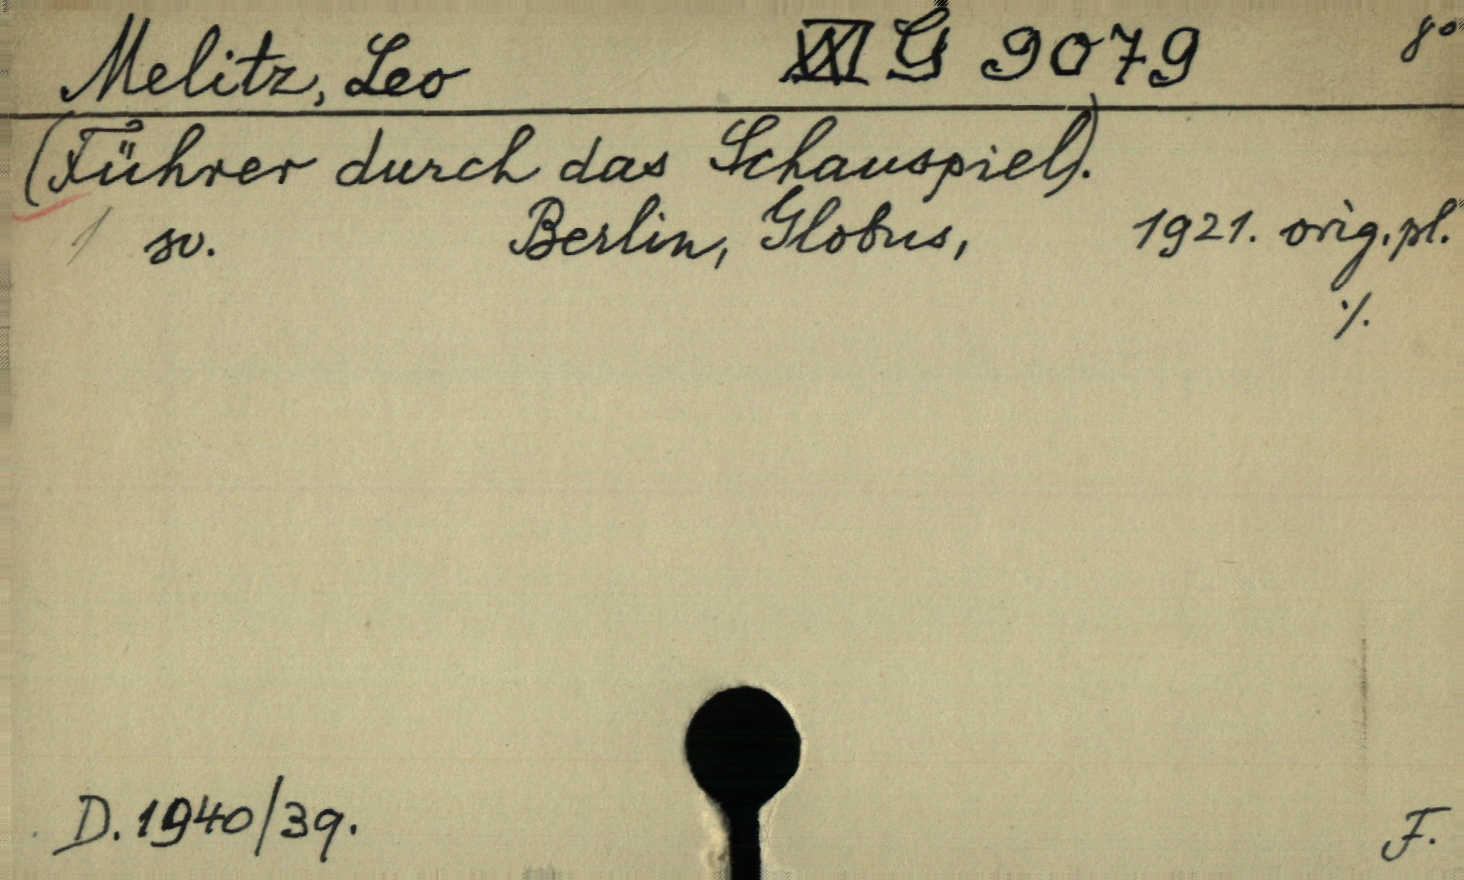 Melitz, Leo XXI G 9079 8°
(Führer durch das Schauspiel).
1 sv. Berlin, Globus, 1921. orig. pl.
./.
D. 1940/39. F.